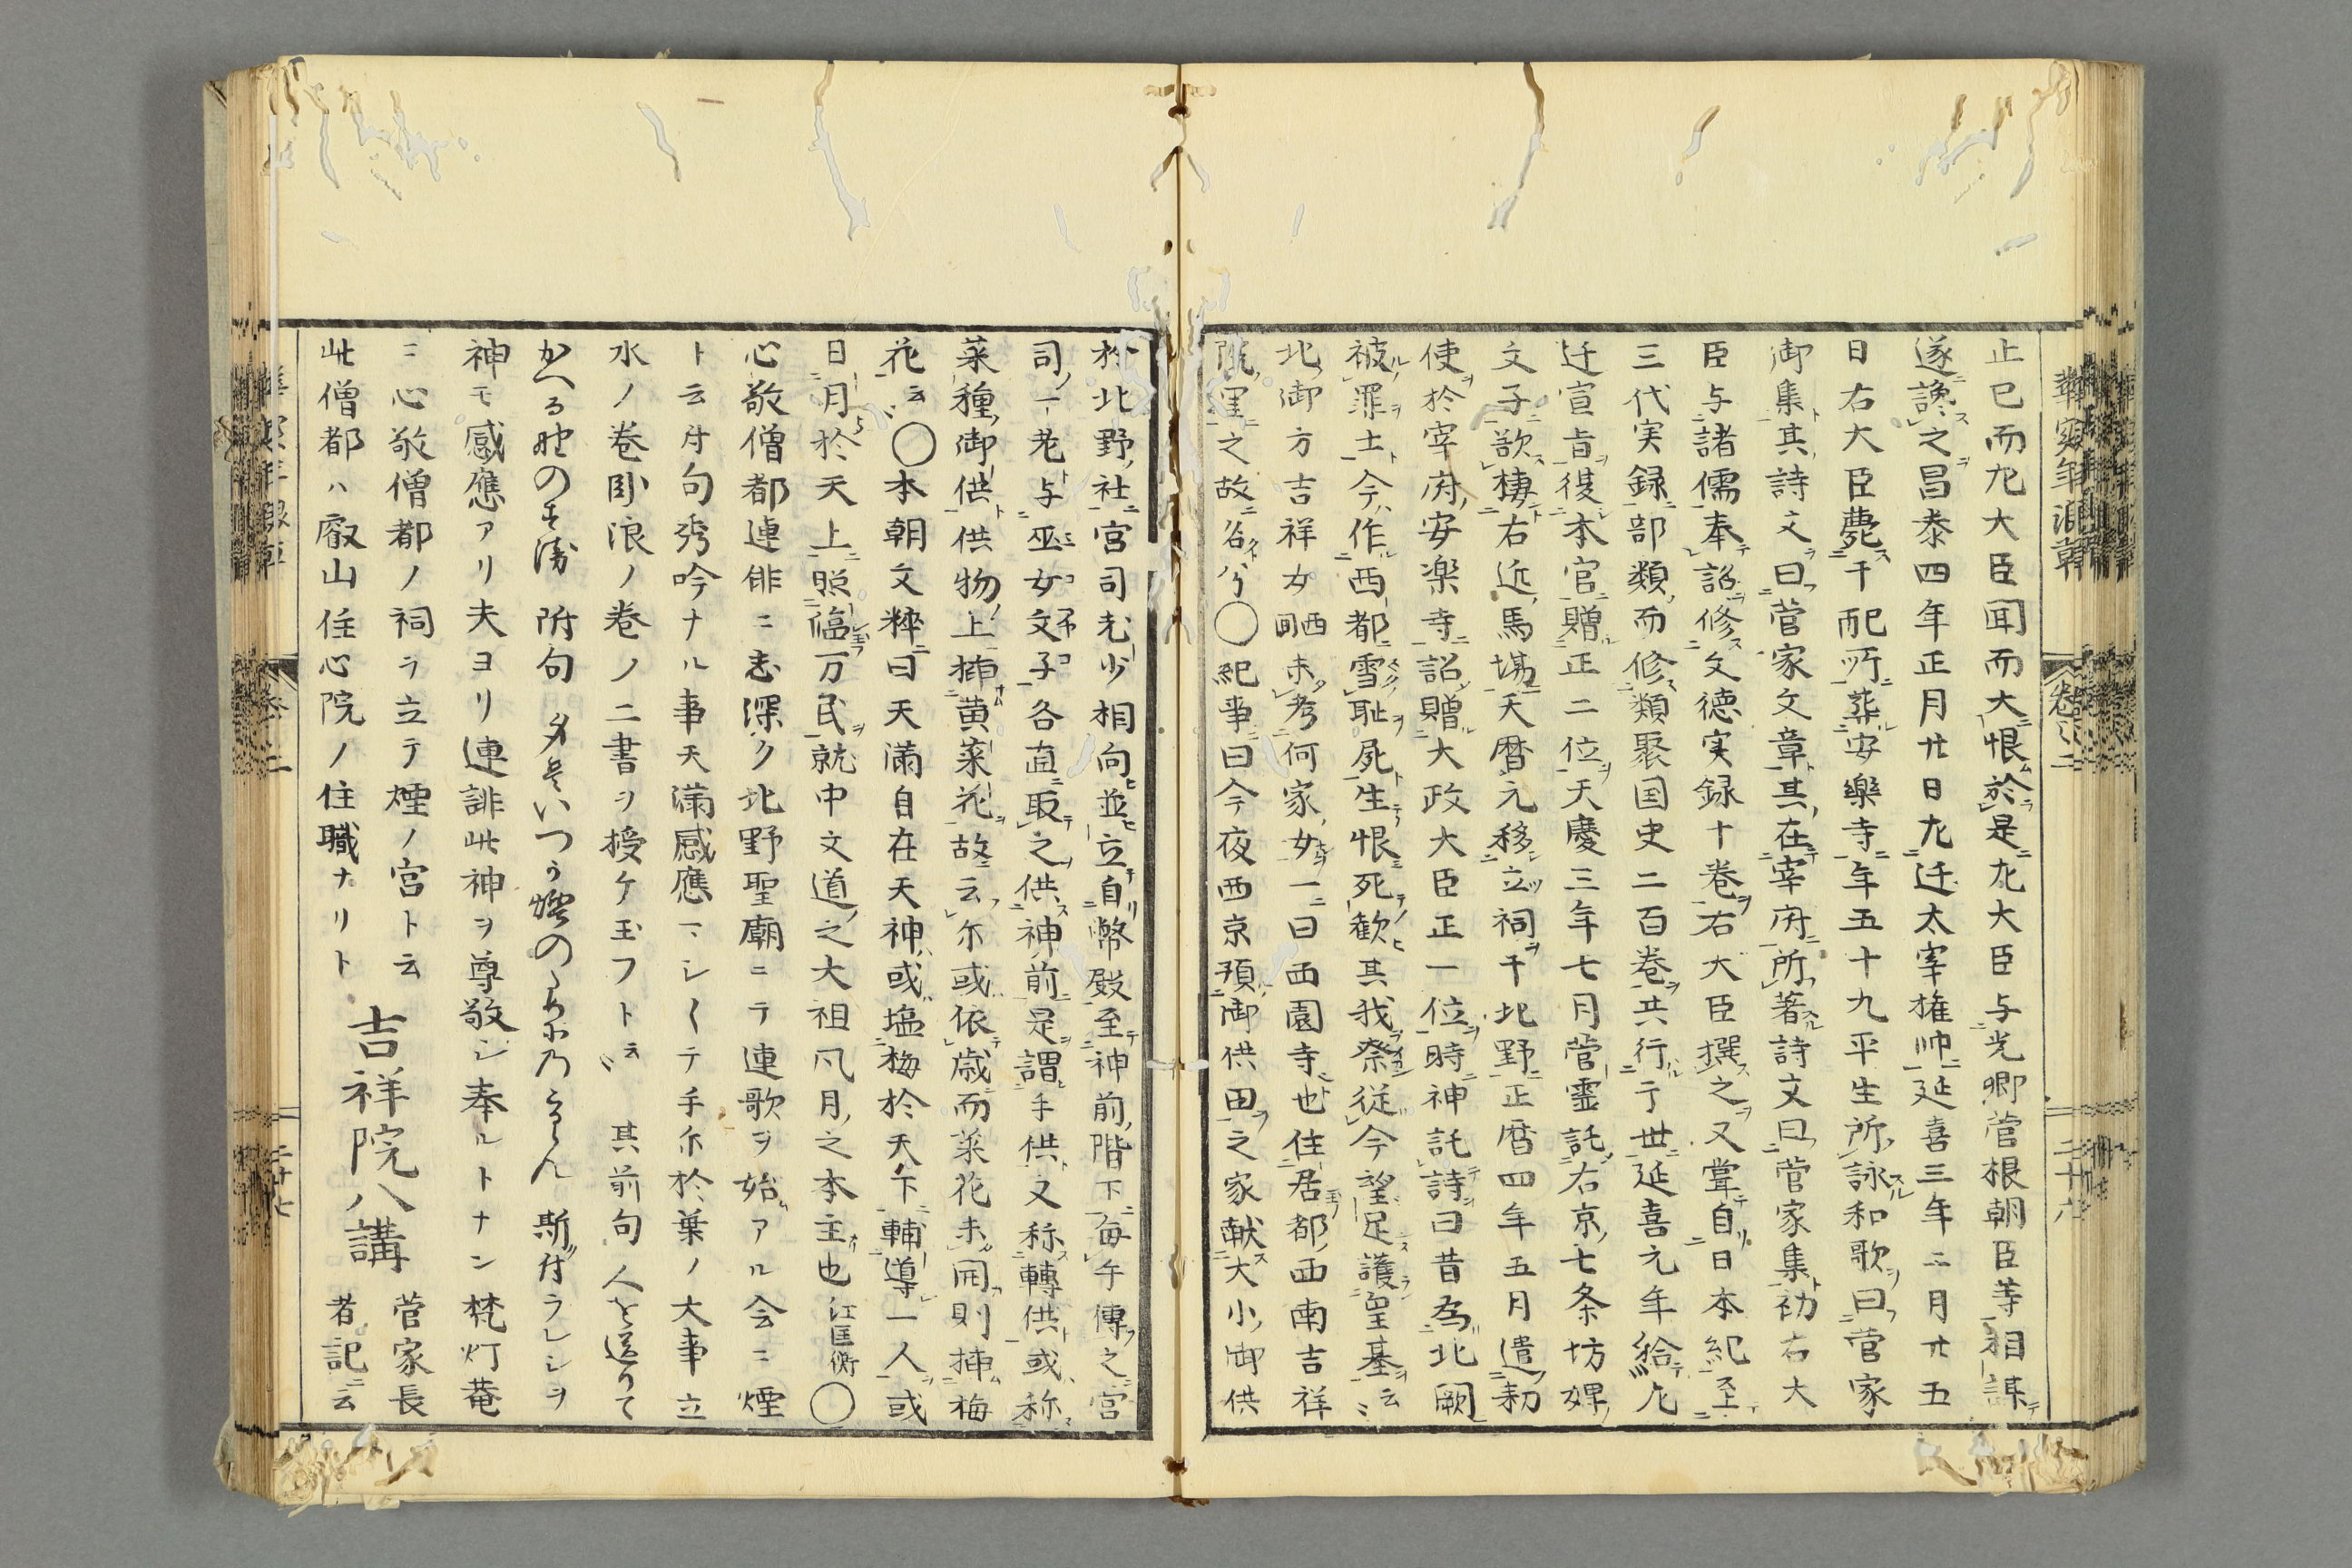 止已而九大臣聞而大恨於是九大臣与光卿菅根朝臣等相謀
遂讒之昌泰四年正月廿日九迁太宰権帥延喜三年二月廿五
日右大臣薨干配所葬安樂寺年五十九平生所詠和歌曰菅家
御集其詩文曰菅家文章其在宰府所著詩文曰菅家集初右大
臣与諸儒奉詔修文徳実録十巻右大臣撰之又甞自日本紀至
三代実録部類而修類聚国史二百巻共行于世延喜元年給九
迁宣旨復本官贈正二位天慶三年七月菅霊託右京七条坊婢
文子欲棲右近馬場天暦元移立祠干北野正暦四年五月遣勅
使於宰府安楽寺詔贈大政大臣正一位時神託詩曰昔為北闕
被罪士今作西都雪耻屍生恨死歓其我祭従今望足護皇基云〻
北御方吉祥女未考何家女一曰西園寺也住居都西南吉祥
院里之故名〇紀事曰今夜西京預御供田之家献大小御供
於北野社宮司老少相向並立自幣殿至神前階下毎手傳之宮
司一老与巫女文子各直取之供神前是謂手供又称轉供或称
菜種御供供物上挿黄菜花故云尓或依歳而菜花未開則挿梅
花云〻〇本朝文粹曰天満自在天神或塩梅於天下輔導一人或
日月於天上照臨万民就中文道之大祖凡月之本主也江匡衡〇
心敬僧都連俳ニ志深ク北野聖廟ニテ連歌ヲ始アル会ニ煙
ト云付句秀吟ナル事天満感應マシ〱テ手尓於葉ノ大事立
水ノ巻臥浪ノ巻ノ二書ヲ授ケ玉フト云〻 其前句 人を送りて
かへる野のすゑ 附句 夕〻いつう煙の 斯付ラレシヲ
神モ感應アリ夫ヨリ連誹此神ヲ尊敬シ奉ルトナン梵灯菴
ニ心敬僧都ノ祠ヲ立テ煙ノ宮ト云
此僧都ハ叡山住心院ノ住職ナリト
吉祥院八講
菅家長
者記ニ云